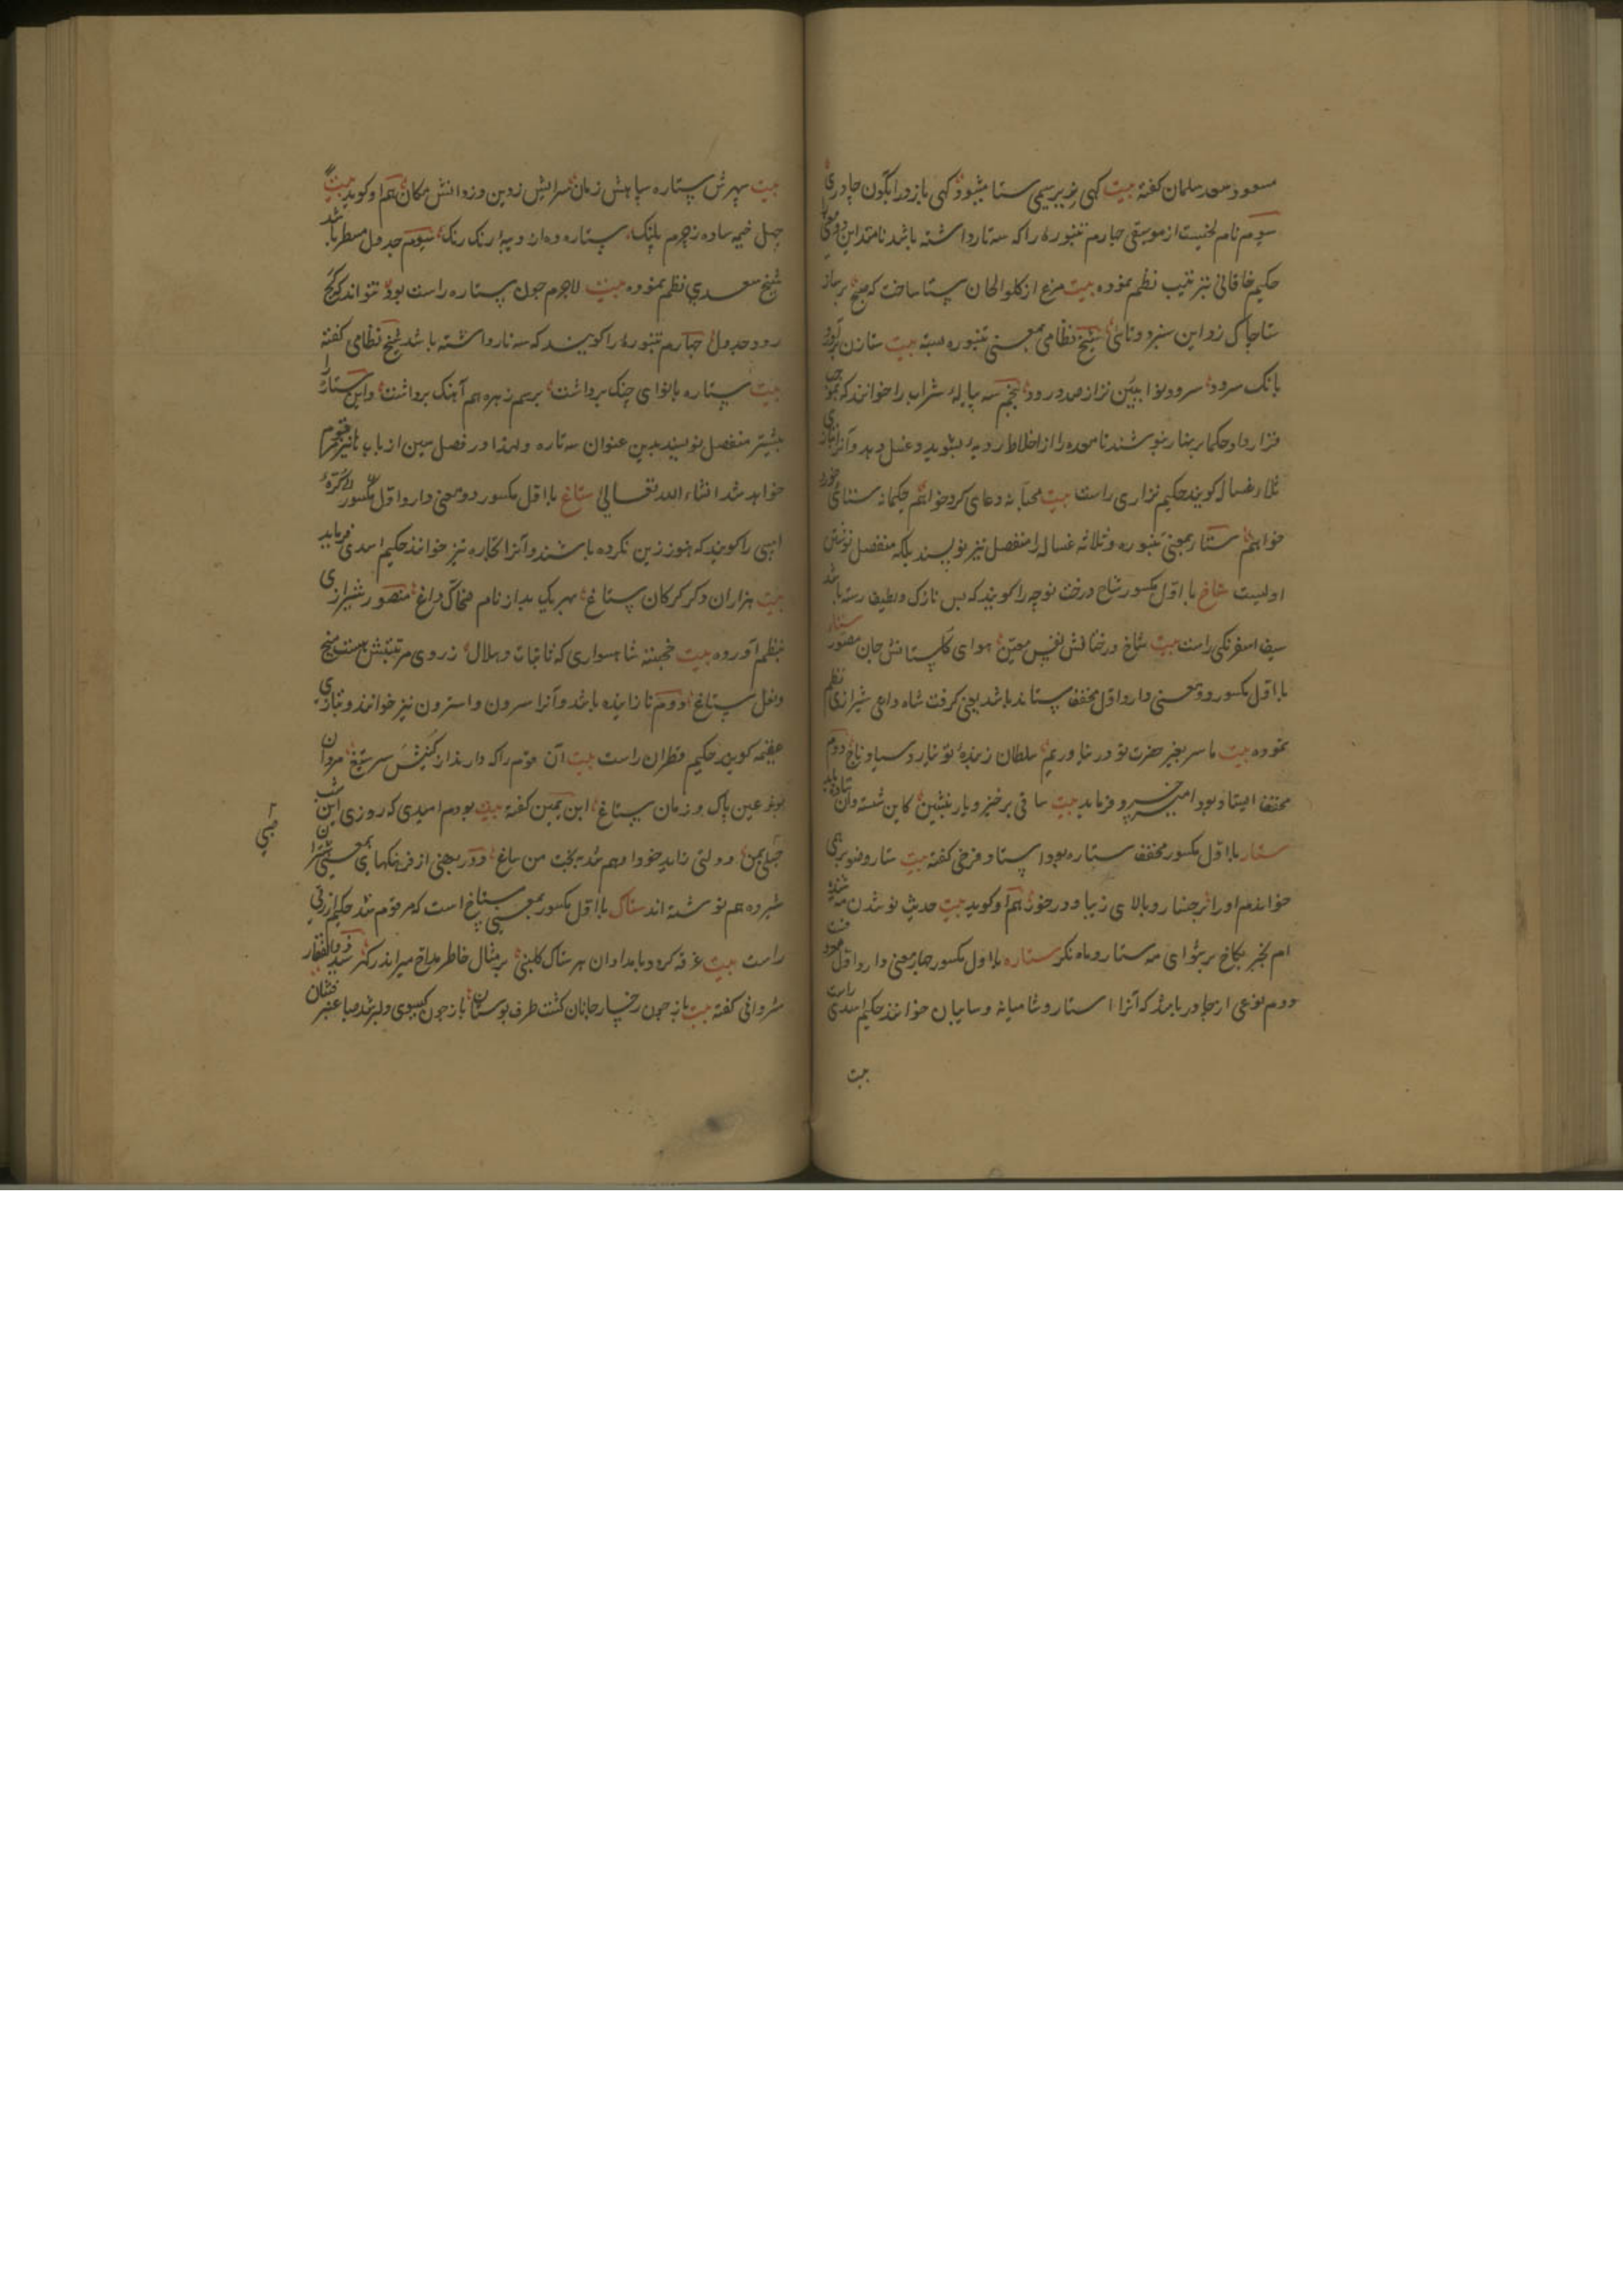 مسعود سعد سلمان گفته بیت کهی زیر برسیمی ستا میشود کهی باز در آبگون چادری
سوم نام لحنیست از موسیقی چهارم تنبوره را که سه تار داشته باشد نامند این دو معنی
حکیم خاقانی بترتیب نظم نموده بیت مرغ از کلو الحان ستا ساخت که صبح برساز
ستا چاک زد این سبز و تائی شیخ نظامی بمعنی تنبوره بسته بیت ستا زن
بانک سرود سرود نوا از صد درود پنجم سه پیاله شراب را خوانند که
قرار داد حکما بر نهار بنوشند تا معده را از اخلاط ردیه بشوید و غسل دهد و آنرا بتازی
ثلاثه غساله گویند حکیم نزاری راست بیت دعای کرد خواهم حکیمانه ستائی خورد
خواهم ستا بمعنی تنبوره و ثلاثه غساله را منفصل نیز نویسند بلکه منفصل نوشتن
اولیست ستاخ با اول مکسور شاخ درخت نوچه را گویند که بس نازک و لطیف رسته باشد
سیف اسفرنکی راست بیت شاخ درختانش نفیس معین هوای گلستانش جان مصور ستاد
با اول مکسور دو معنی دارد اول مخفف ستاند باشد یعنی گرفت شاه داعی شیرازی نظم
نموده بیت ما سر بغیر حضرت تو در نیاوریم سلطان زبنده تو نیارد ستاد باج دوم
مخفف ایستاد بود امیر خسرو فرماید بیت ساقی برخیز و یار بنشین کاین شسته و آن ستاده باید
ستار با اول مکسور مخفف ستاره بود استاد فرخی گفته بیت ستاره و صنوبر همی
خواندم او را بر رخسار و بالای زیبا و در خور هم او گوید بیت حدیث نو شدن مه شنیده
ام بخبر بکاخ بر شو ای مه ستار و ماه نکر ستاره با اول مکسور چهار معنی دارد اول معروفست
دوم نوعی از چادر باشد که آنرا استار و شامیانه و سایبان خوانند حکیم اسدی راست
بیت
بیت سپهرش ستاره سپاهش زمان سرایش زمین و زوانش مکان هم او گوید بیت
چهل خیمه ساده ز چرم پلنک ستاره ده از دیبه رنک رنک سوم جدول مسطر باشد
شیخ سعدی نظم نموده بیت لاجرم چون ستاره راست بود نتواند که کج
رود جدول چهارم تنبوره را گویند که سه تار داشته باشد شیخ نظامی گفته
بیت ستاره با نوای چنک برداشت برسم زهره هم آهنک برداشت و این ستاره را
بیشتر منفصل نویسند بدین عنوان سه تاره و لهذا در فصل سین از باب تا نیز مرقوم
خواهد شد انشاء الله تعالی ستاغ با اول مکسور دو معنی دارد اول کره
اسپی را گویند که هنوز زین نکرده باشند و آنرا نیز خوانند حکیم اسدی فرماید
بیت هزاران دکر کرکان ستاغ بهر یک بر از نام ضحاک داغ منصور شیرازی
بنظم آورده بیت خجسته شاهسواری که ثابتات و هلال ز روی مرتبتش هست میخ
و نعل ستاغ دوم نا زاینده باشد و آنرا سترون و استرون نیز خوانند و بتازی
عقیمه گویند حکیم قطران راست بیت آن قوم را که دارند از سر ستیغ مروان
بود عین پاک و زمان ستاغ ابن یمین گفته بیت بودم امیدی که روزی این شب
حبلی بمن دولتی زاید خود او هم شد به بخت من ستاغ و در بعضی از فرهنکها بمعنی شتران
شیرده هم نوشته اند ستاک با اول مکسور بمعنی ستاخ است که مرقوم شد حکیم ازرقی
راست بیت غرقه کرد و بامدادان هر ستاک کلبنی بر مثال خاطر مداح میر اندر گهر سید ذوالفقار
شروانی گفته بیت باز چون رخسار جانان کشت طرف بوستان باز چون گیسوی دلبر شد صبا عنبر فشان